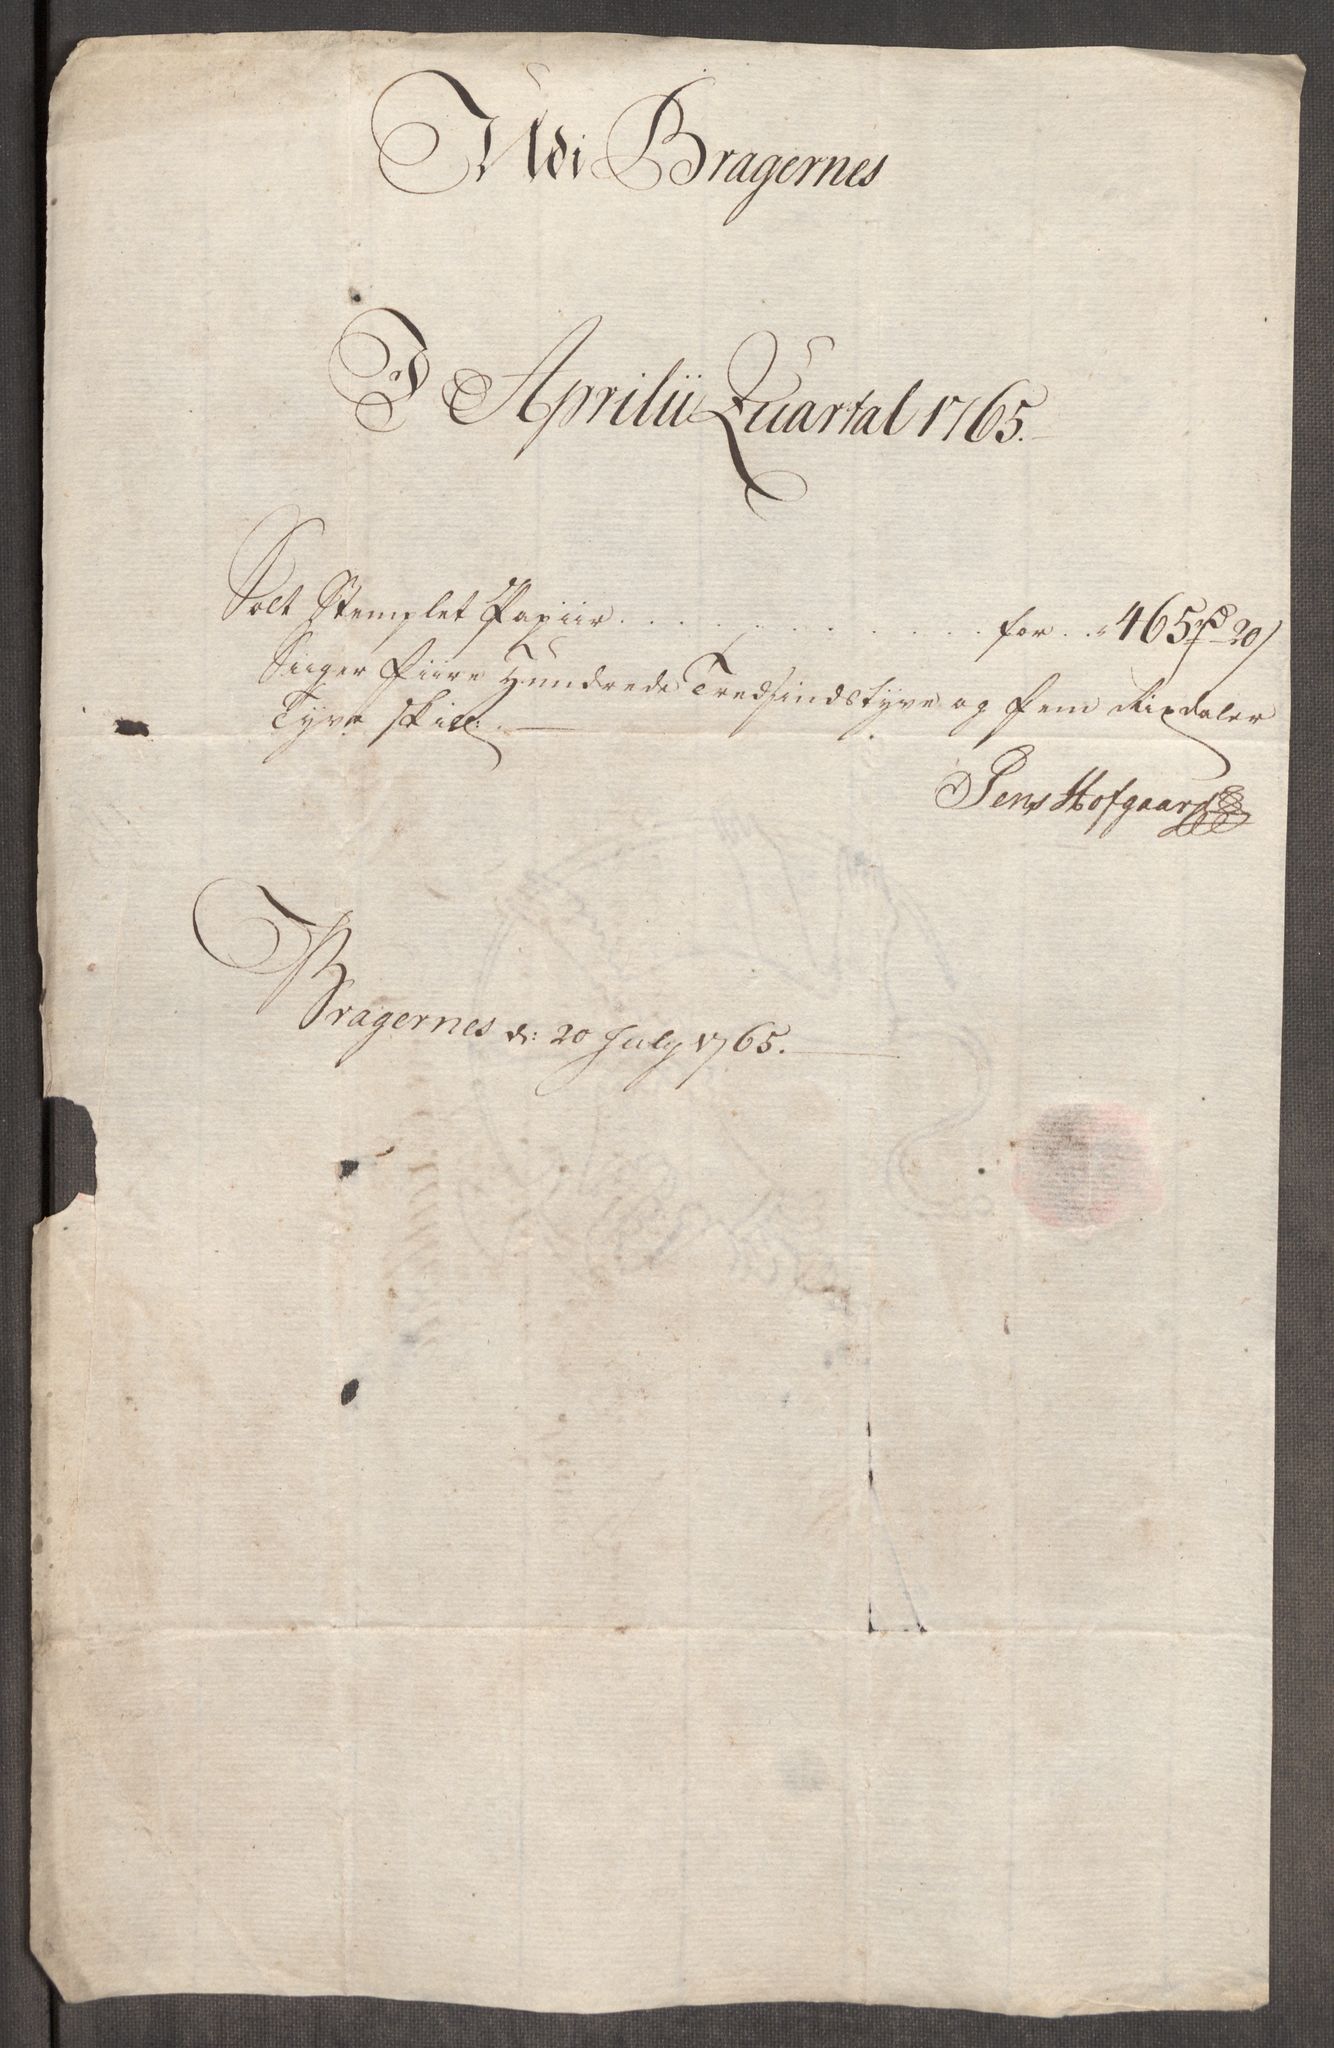 Udi Bragernes
I Aprilii Quartal 1765.
Solt Stemplet Papiir . . . . . . . . . . . . . for . . 465 rd 20 s
Siiger Fiire Hundrede Tredsindstyve og fem Rixdaler
Tyve skill:
Jens Hofgaard
Bragernes d: 20 July 1765.